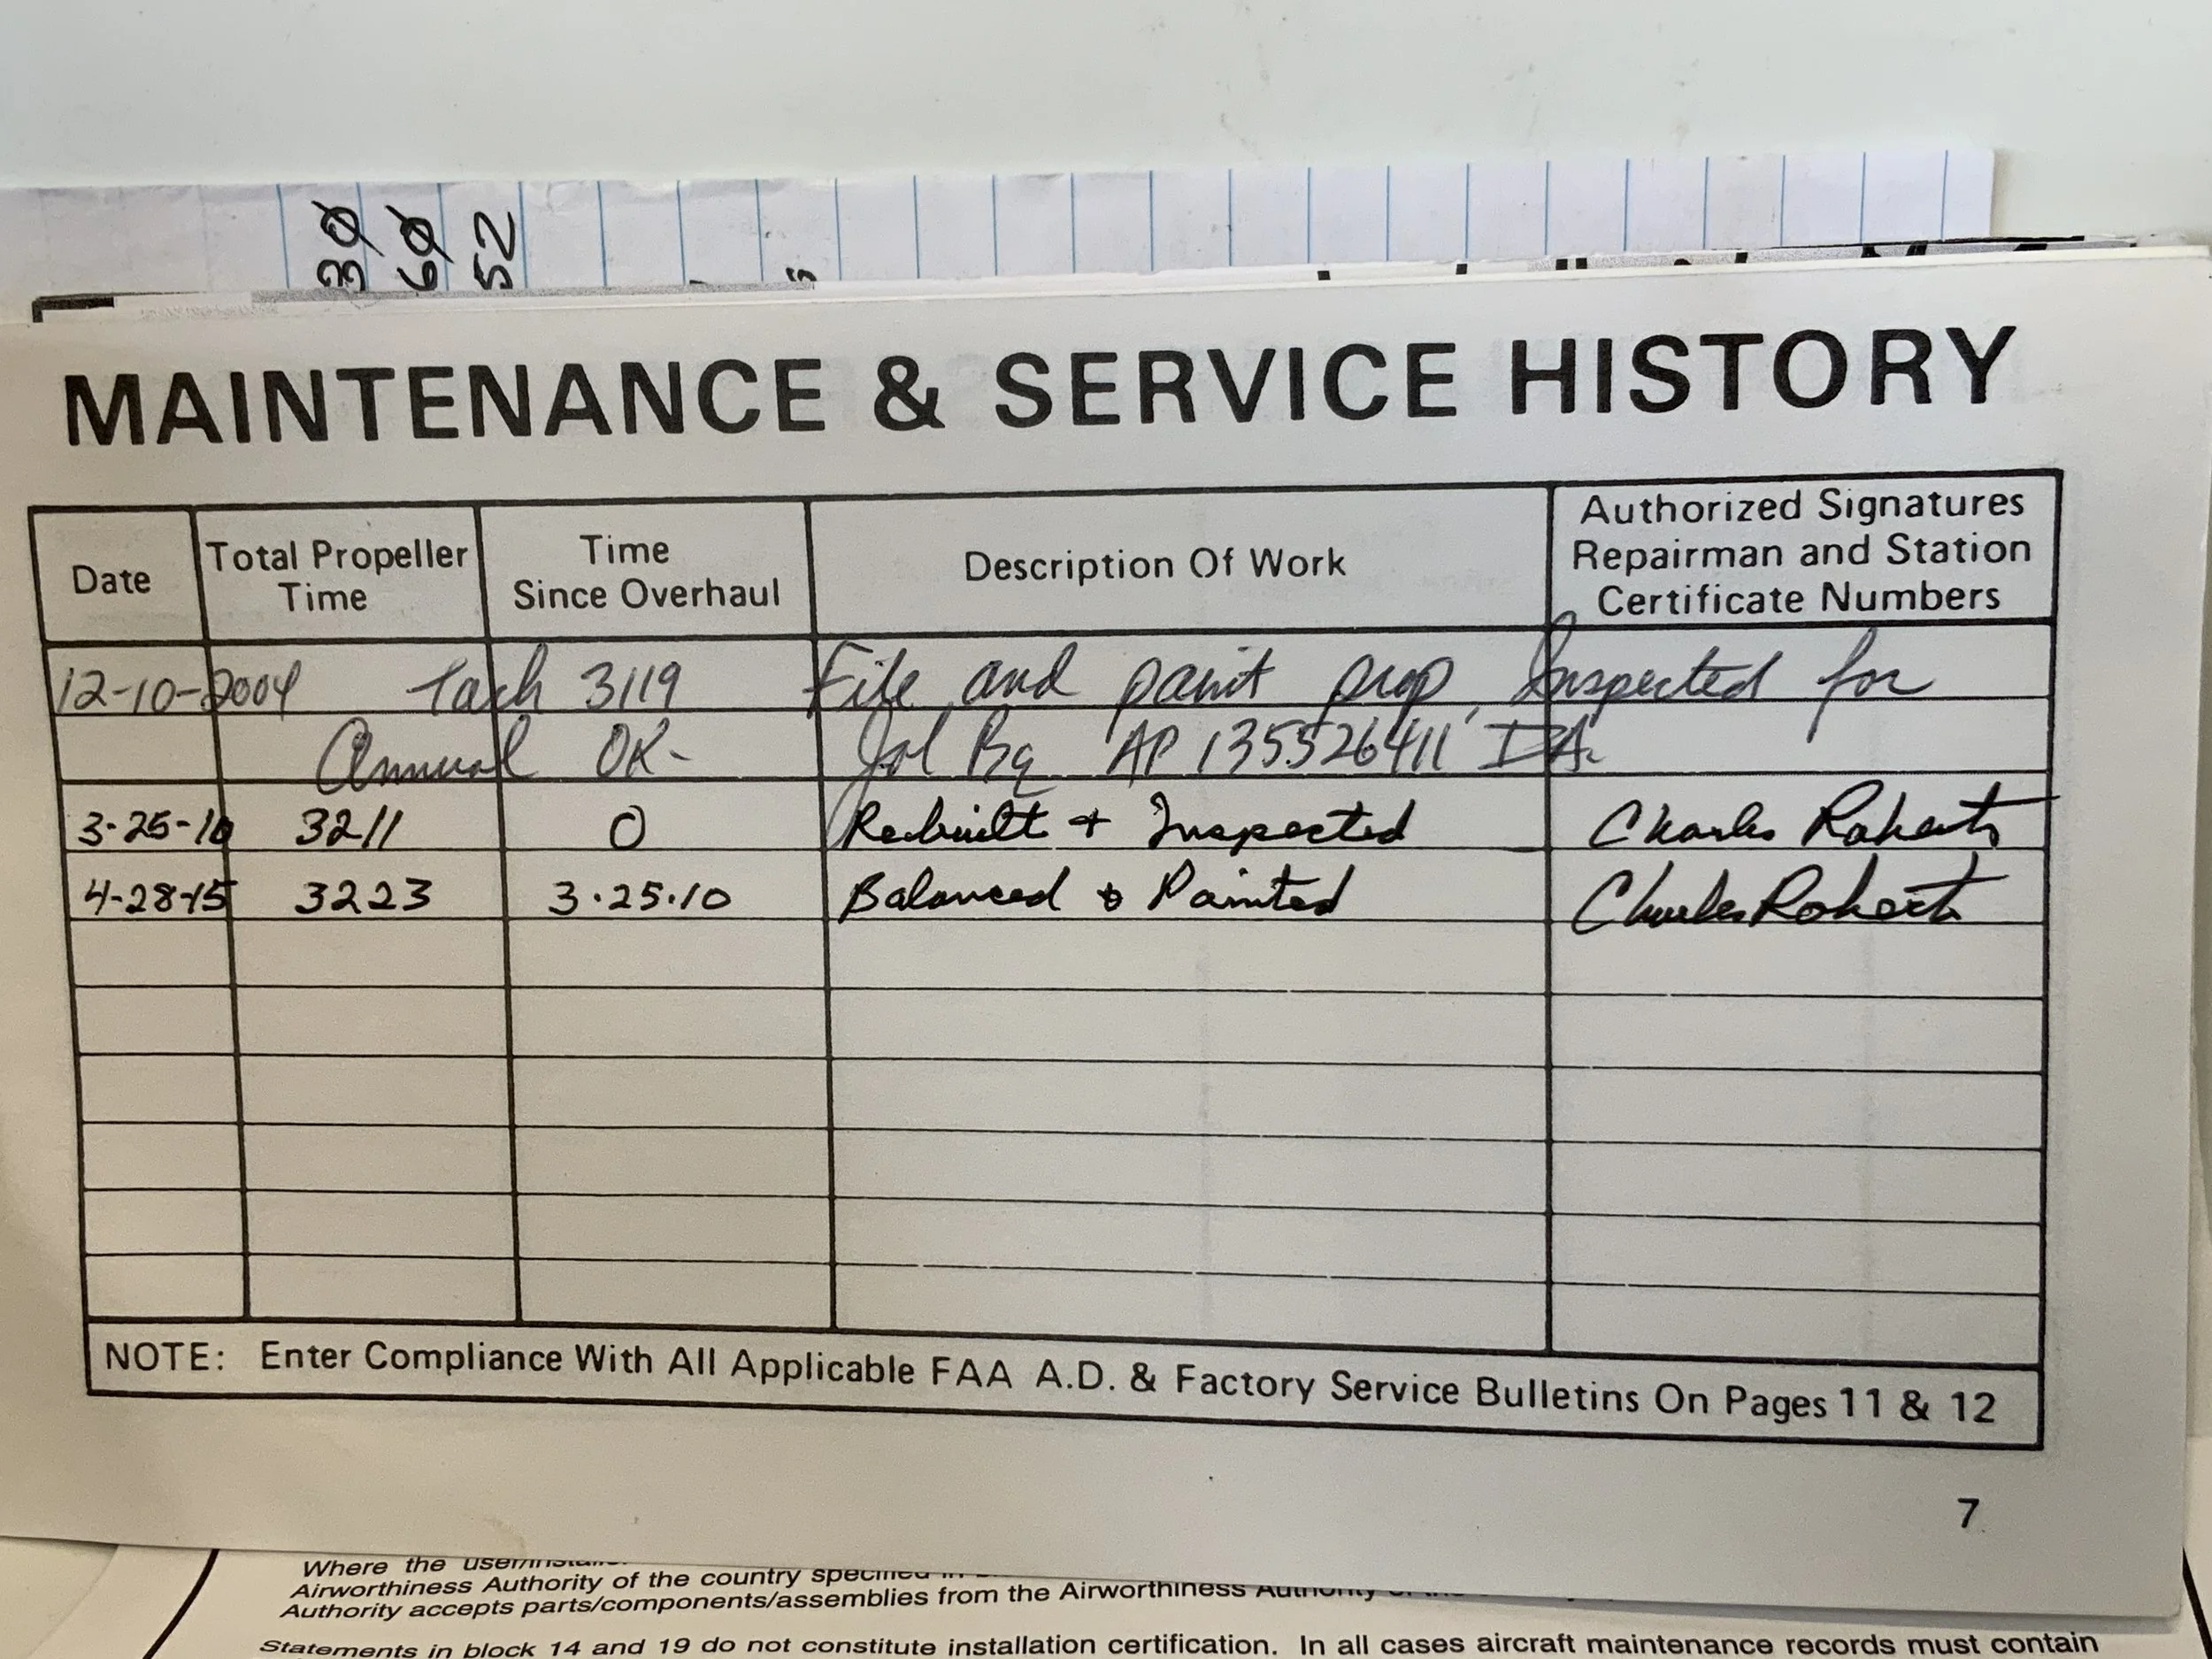 30
60
52
MAINTENANCE & SERVICE HISTORY
Date
Total Propeller
Time
Time
Since Overhaul
Description Of Work
Authorized Signatures
Repairman and Station
Certificate Numbers
12-10-2004 Tach 3119 File and paint prop, Inspected for
Annual OK- AP 135526411 IA.
3-25-10 3211 0 Rebuilt + Inspected Charles Roberts
4-28-15 3223 3.25.10 Balanced & Painted Charles Roberts
NOTE: Enter Compliance With All Applicable FAA A.D. & Factory Service Bulletins On Pages 11 & 12
7
Where the
Airworthiness Authority of the country specified in
Authority accepts parts/components/assemblies from the Airworthiness Authority
Statements in block 14 and 19 do not constitute installation certification. In all cases aircraft maintenance records must contain